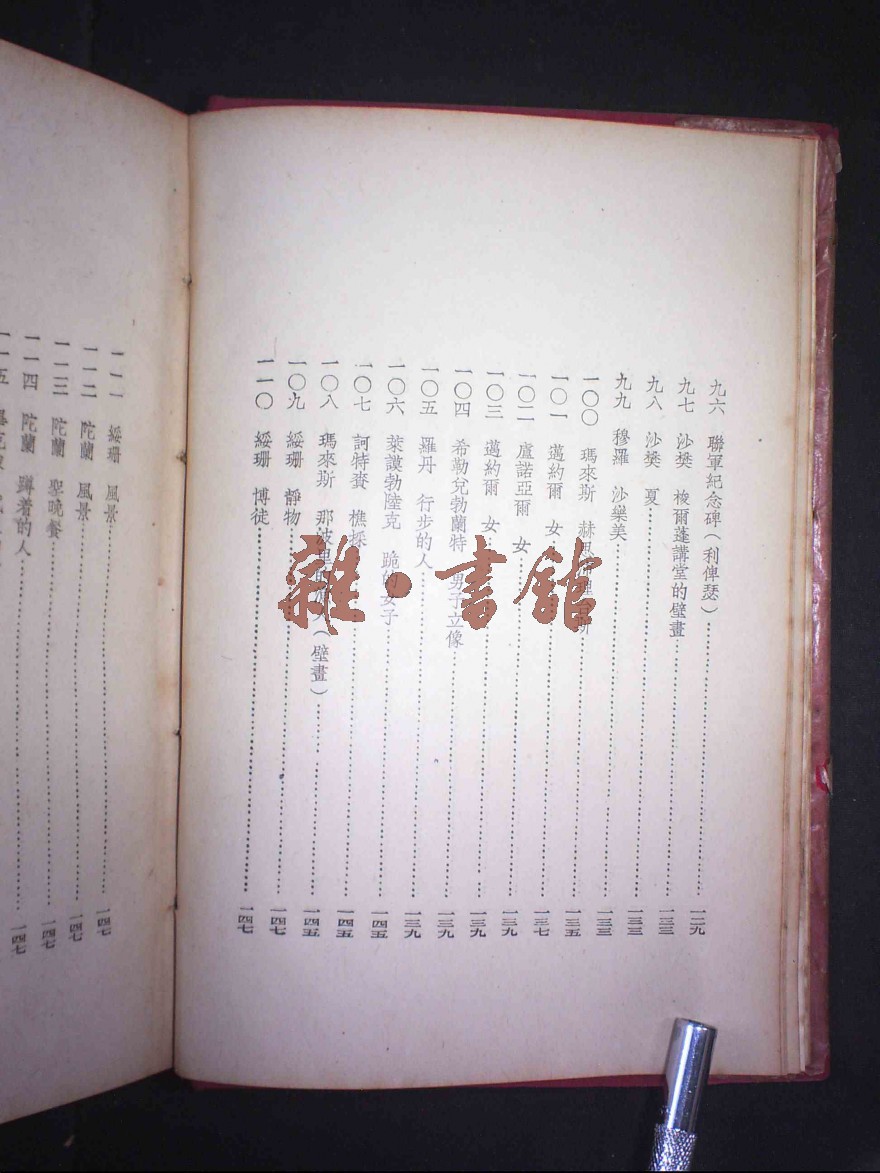 九六 聯軍紀念碑(利俾瑟)……一二九
九七 沙樊 梭爾蓬講堂的壁畫……一三三
九八 沙樊 夏……一三三
九九 穆羅 沙樂美……一三三
一〇〇 瑪來斯 赫……一三五
一〇一 邁約爾 女……一三七
一〇二 盧諾亞爾 女……一三九
一〇三 邁約爾 女……一三九
一〇四 希勒兌勃蘭特 男子立像……一三九
一〇五 羅丹 行步的人……一三九
一〇六 萊謨勃陸克 跪的女子……一四五
一〇七 訶特賚 樵採……一四五
一〇八 瑪來斯 那波里的 人(壁畫)……一四五
一〇九 綏珊 靜物……一四七
一一〇 綏珊 博徒……一四七
一一一 綏珊 風景……一四七
一一二 陀蘭 風景……一四七
一一三 陀蘭 聖晚餐……一四七
一一四 陀蘭 蹲着的人……一四七
一一五
雜·書館